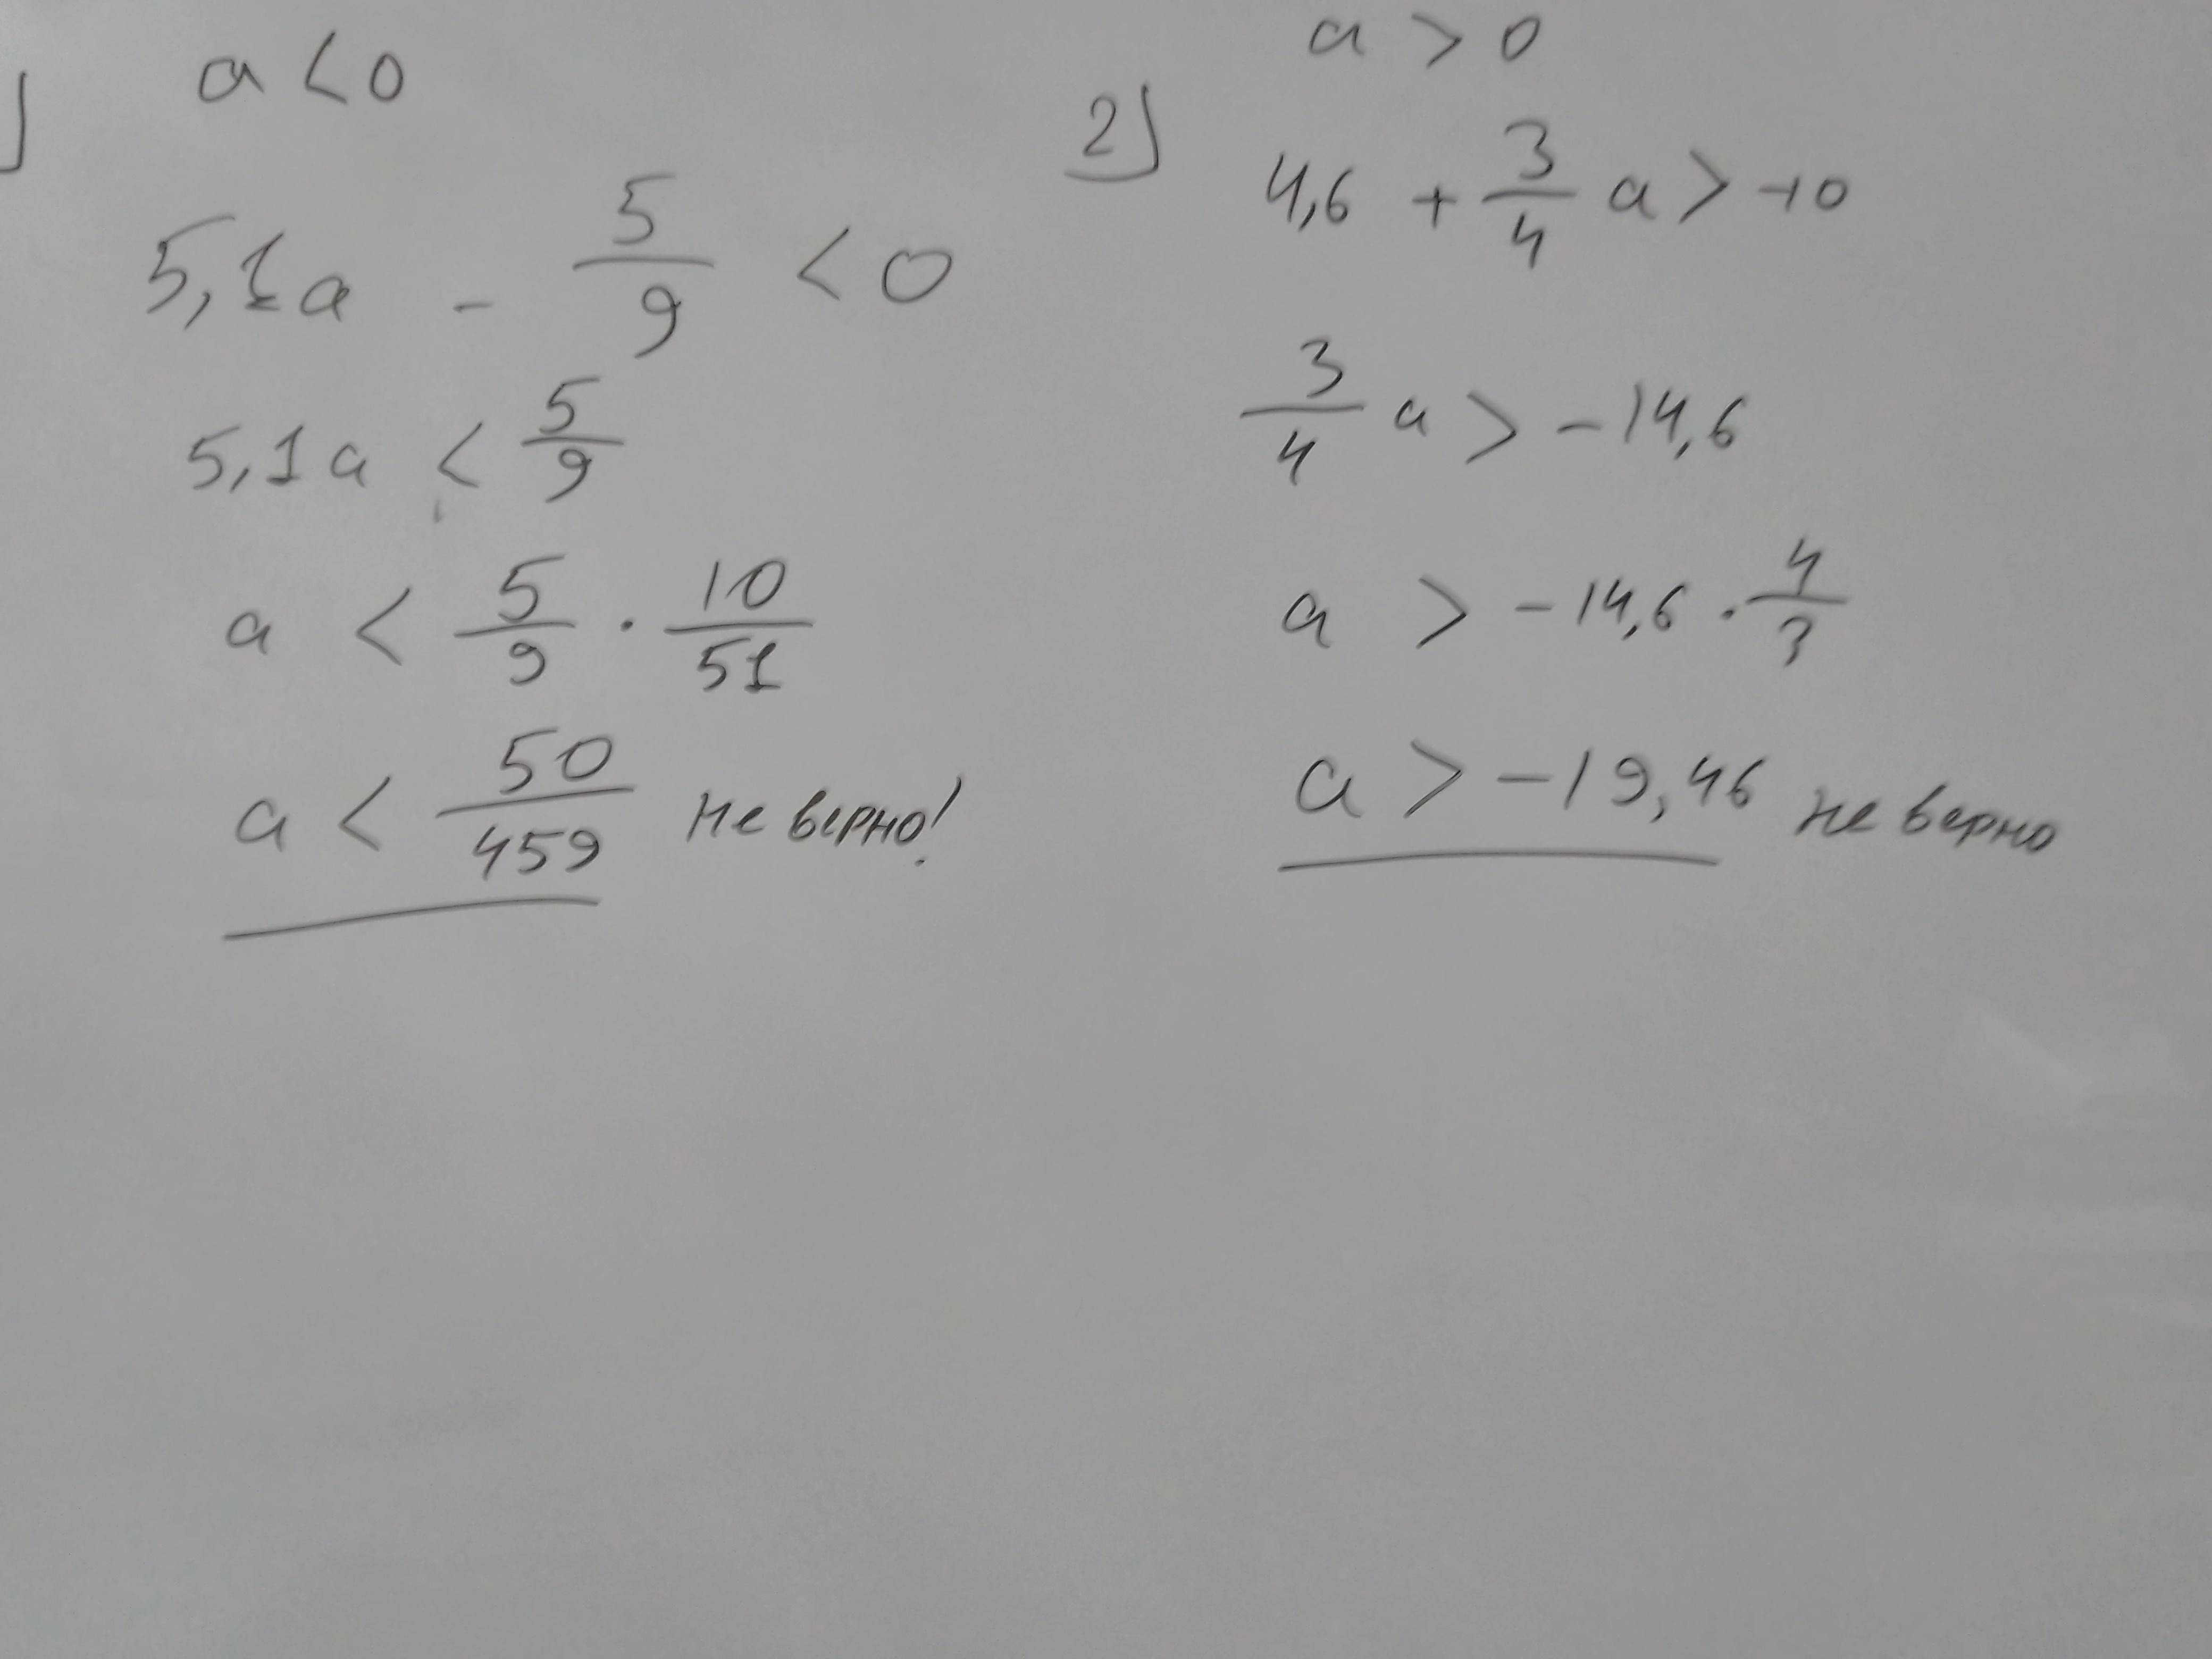 ]
a < 0
5,1a - 5/9 < 0
5,1a < 5/9
a < 5/9 · 10/51
a < 50/459 не верно!
2]
a > 0
4,6 + 3/4 a > -10
3/4 a > -14,6
a > -14,6 · 4/3
a > -19,46 не верно